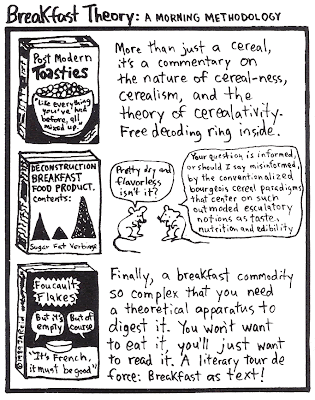 Breakfast Theory: A MORNING METHODOLOGY
Post Modern
Toasties
"Like everything
you've had
before, all
mixed up."
More than just a cereal,
it's a commentary on
the nature of cereal-ness,
cerealism, and the
theory of cerealativity.
Free decoding ring inside.
DECONSTRUCTION
BREAKFAST
FOOD PRODUCT.
Contents:
Sugar Fat Verbiage
Pretty dry and
flavorless
isn't it?
Your question is informed,
or should I say misinformed,
by the conventionalized
bourgeois cereal paradigms
that center on such
outmoded esculatory
notions as taste,
nutrition and edibility
Foucault
Flakes
But it's
empty
But of
course
"It's French,
it must be good"
Finally, a breakfast commodity
so complex that you need
a theoretical apparatus to
digest it. You won't want
to eat it, you'll just want
to read it. A literary tour de
force: Breakfast as text!